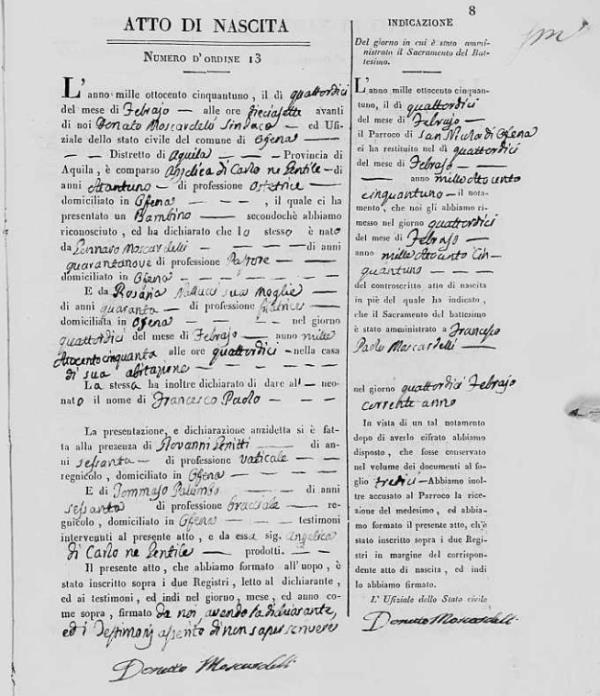 8
ATTO DI NASCITA
NUMERO D'ORDINE 13
L'anno mille ottocento cinquantuno, il dì quattordici
del mese di Febrajo — alle ore dieciasette avanti
di noi Donato Moscardelli Sindaco — ed Ufi-
ziale dello stato civile del comune di Ofena —
— Distretto di Aquila — Provincia di
Aquila, è comparso Angelica di Carlo ne Pentile — di
anni — di professione Ostetrice —
domiciliato in Ofena —, il quale ci ha
presentato un Bambino — secondochè abbiamo
riconosciuto, ed ha dichiarato che lo stesso è nato
da Gennaro Moscardelli — di anni
quarantanove di professione Pastore —
domiciliato in Ofena —
E da Rosaria sua Moglie —
di anni quaranta — di professione filatrice —
domiciliata in Ofena — nel giorno
quattordici del mese di Febrajo — anno mille
Ottocento cinquanta alle ore quattordici — nella casa
di sua abitazione —
La stessa ha inoltre dichiarato di dare al neo-
nato il nome di Francesco Paolo —
La presentazione, e dichiarazione anzidetta si è fat-
ta alla presenza di Giovanni — di an-
ni sessanta — di professione vaticale —
regnicolo, domiciliato in Ofena —
E di Tommaso — di anni
sessanta — di professione bracciale — re-
gnicolo, domiciliato in Ofena — testimoni
intervenuti al presente atto, e da essa sig. Angelica
di Carlo ne Pentile — prodotti. —
Il presente atto, che abbiamo formato all'uopo, è
stato inscritto sopra i due Registri, letto al dichiarante,
ed ai testimoni, ed indi nel giorno, mese, ed anno co-
me sopra, firmato da noi avendo la dichiarante,
ed i Testimonj asserito di non saper scrivere
Donato Moscardelli
INDICAZIONE
Del giorno in cui è stato ammi-
nistrato il Sacramento del Bat-
tesimo.
L'anno mille ottocento cinquan-
tuno, il dì quattordici
del mese di Febrajo —
il Parroco di San Nicola di Ofena
ci ha restituito nel dì quattordici
del mese di Febrajo —
— anno mille Ottocento
cinquantuno — il nota-
mento, che noi gli abbiamo ri-
messo nel giorno quattordici
del mese di Febrajo —
anno mille Ottocento Cin-
quantuno —
del controscritto atto di nascita
in piè del quale ha indicato,
che il Sacramento del battesimo
è stato amministrato a Francesco
Paolo Moscardelli —
nel giorno quattordici Febrajo
corrente anno
In vista di un tal notamento
dopo di averlo cifrato abbiamo
disposto, che fosse conservato
nel volume dei documenti al fo-
glio tredici — Abbiamo inol-
tre accusato al Parroco la rice-
zione del medesimo, ed abbia-
mo formato il presente atto, ch'è
stato inscritto sopra i due Regi-
stri in margine del corrispon-
dente atto di nascita, ed indi
lo abbiamo firmato.
L' Ufiziale dello Stato civile
Donato Moscardelli